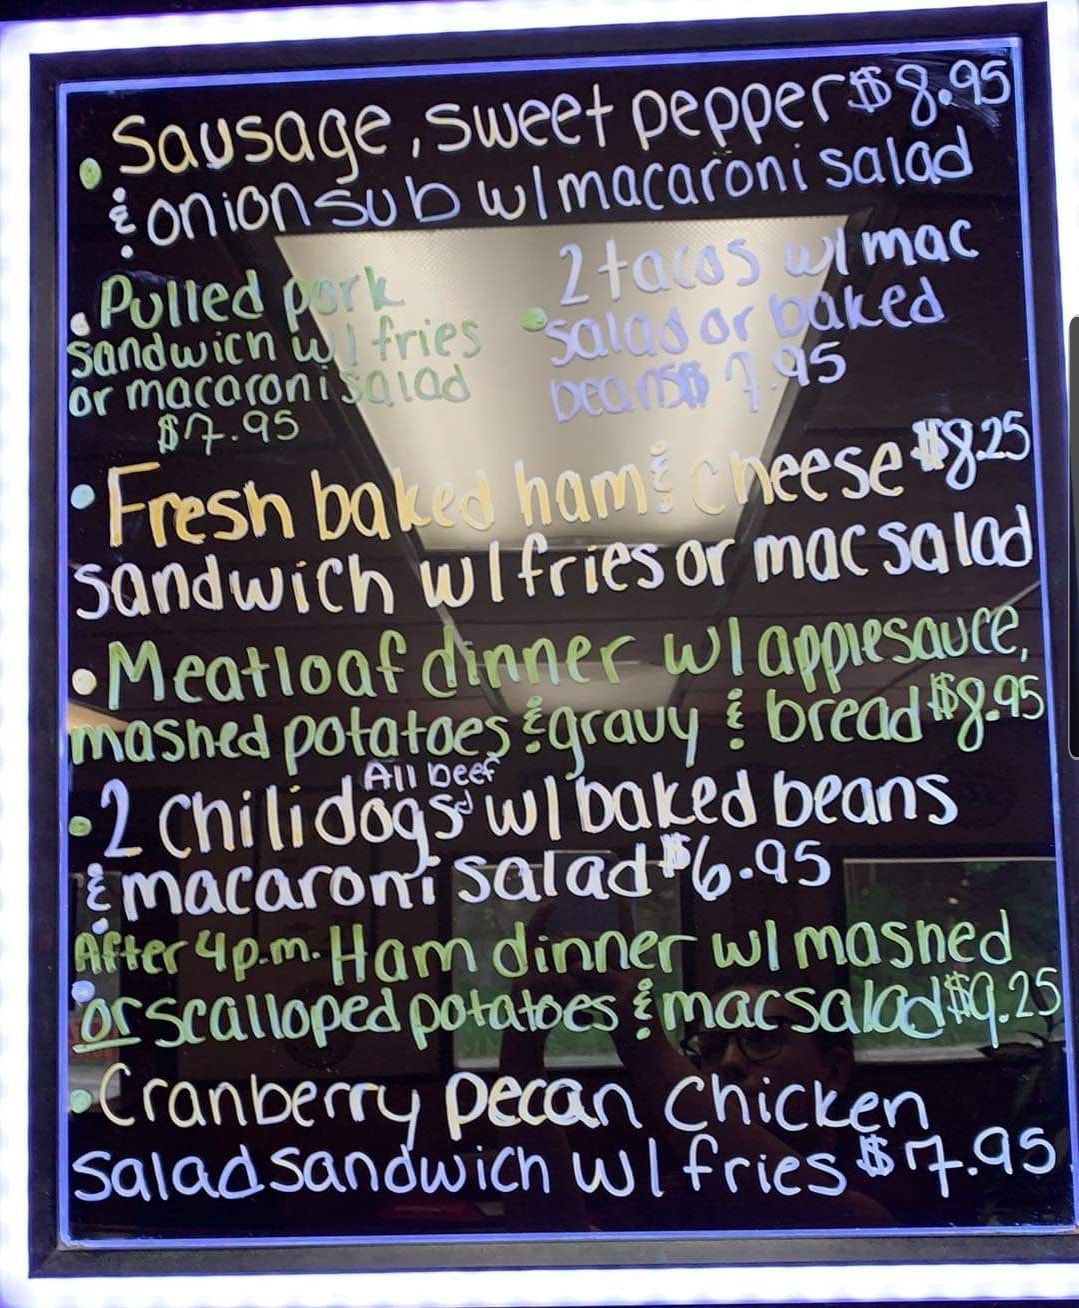 Sausage, sweet pepper $8.95
& onion sub w/ macaroni salad
Pulled pork
sandwich w/ fries
or macaroni salad
$7.95
2 tacos w/ mac
salad or baked
beans $7.95
Fresh baked ham & cheese $8.25
sandwich w/ fries or mac salad
Meatloaf dinner w/ applesauce,
mashed potatoes & gravy & bread $8.95
All beef
2 Chili dogs w/ baked beans
& macaroni salad $6.95
After 4p.m. Ham dinner w/ mashed
or scalloped potatoes & mac salad $9.25
Cranberry pecan chicken
salad sandwich w/ fries $7.95